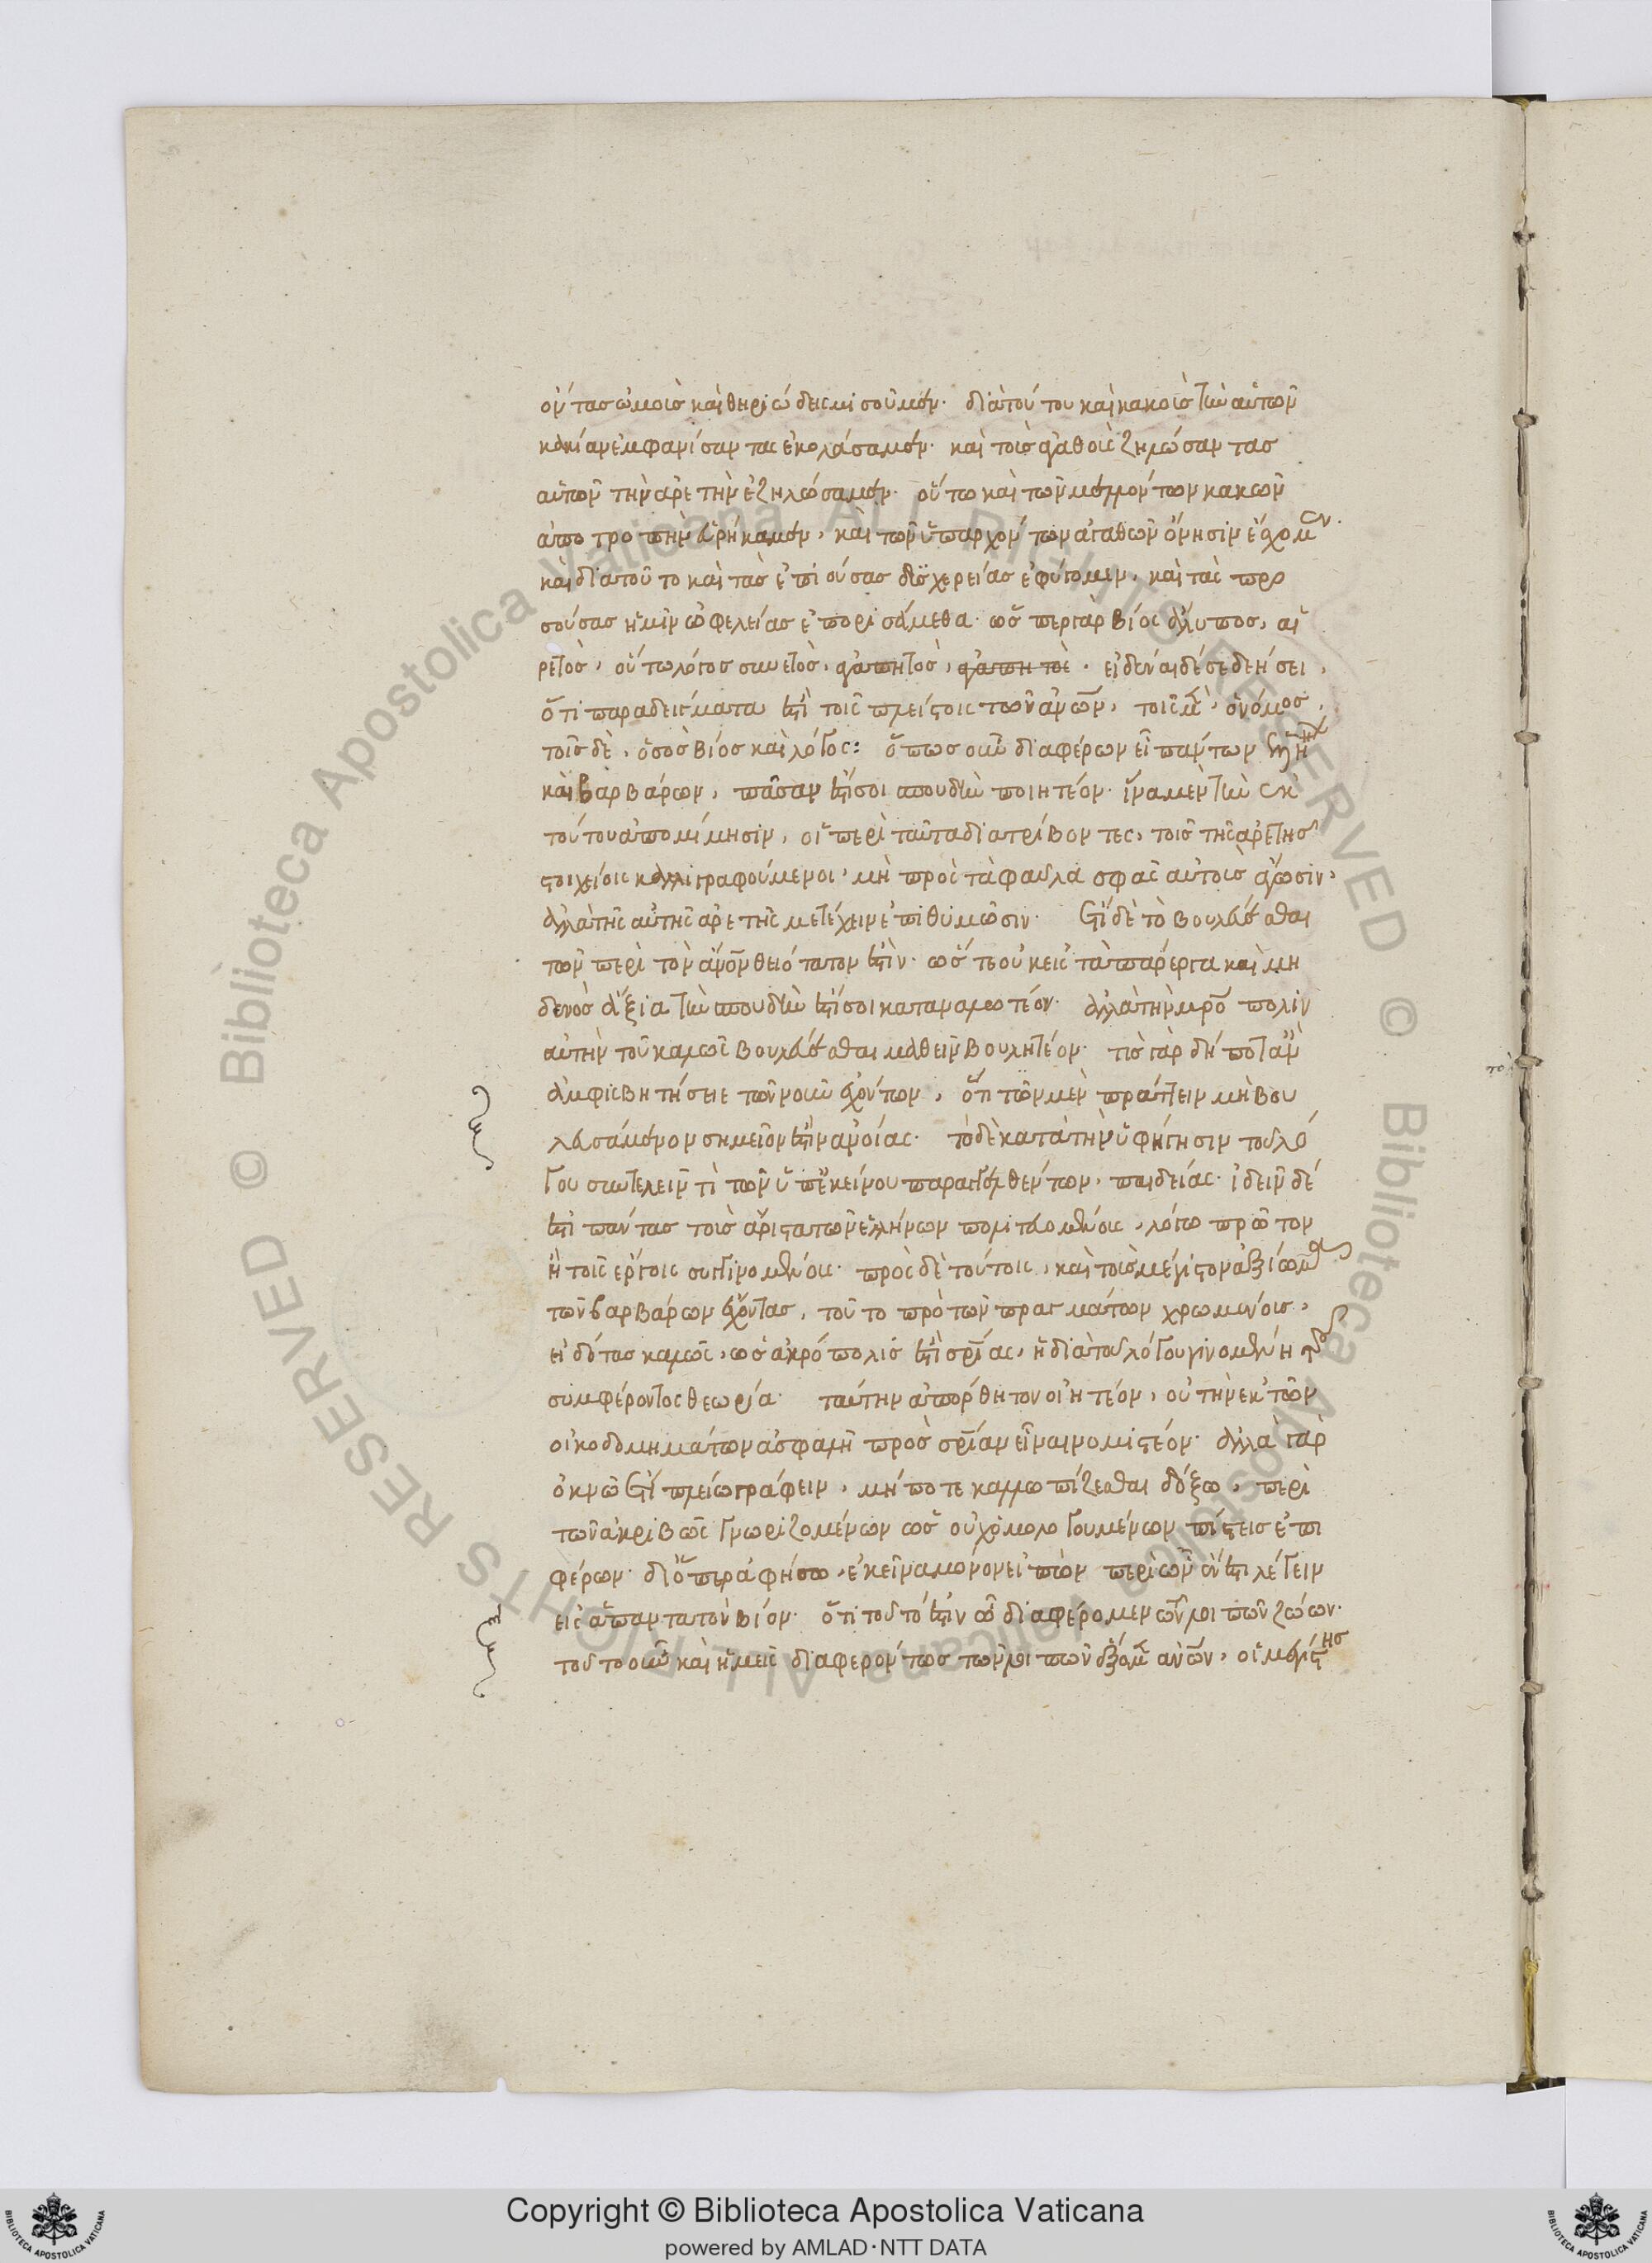 ὄντασ ὠμοὺσ καὶ θηριώδεις μισοῦμεν· διὰ τούτου καὶ κακοὺσ τὴν αὐτῶν
κακίαν ἐμφανίσαντας ἐκολάσαμεν· καὶ τοὺσ ἀγαθοὺς ζηλώσαντασ
αὐτῶν τὴν ἀρετὴν ἐζηλώσαμεν· οὕτω καὶ τῶν μελλόντων κακῶν
ἀποτροπὴν εὑρήκαμεν, καὶ τῶν ὑπαρχόντων ἀγαθῶν ὄνησιν ἔσχομεν·
καὶ διὰ τοῦτο καὶ τὰσ ἐπιούσας δυσχερείασ ἐφύγομεν, καὶ τὰς προ
σούσας ἡμῖν ὠφελείας ἐπορισάμεθα· ὥσπερ γὰρ βίος ἄλυπος, αἱ
ρετὸσ, οὕτω λόγος συνετὸσ, ἀγαπητὸσ, ἀγαπητὸσ· εἰδέναι δέ σε δεήσει,
ὅτι παραδείγματα ἐστὶ τοῖς πλείστοις τῶν ἀνῶν, τοῖς μὲν, ὁ νόμοσ,
τοῖσ δὲ, ὁ σὸσ βίοσ καὶ λόγος: ὅπωσ οὖν διαφέρων εἶ πάντων ἑλλήν
καὶ βαρβάρων, πᾶσαν ἐστί σοι σπουδὴν ποιητέον· ἵνα μὲν τὴν ἐκ
τούτου ἀπομίμησιν, οἱ περὶ ταῦτα διατρίβοντες, τοῖσ τῆς ἀρετῆσ
στοιχείοις καλλιγραφούμενοι, μὴ πρὸς τὰ φαῦλα σφᾶς αὐτοὺσ ἄγωσιν,
ἀλλὰ τῆς αὐτῆς ἀρετῆς μετέχειν ἐπιθυμῶσιν· ἔτι δὲ τὸ βουλεύεσθαι
τῶν περὶ τὸν ἄνον θειότατον ἐστὶν· ὥστε οὐκ εἰς τὰ πάρεργα καὶ μη
δενὸσ ἄξια τὴν σπουδὴν ἐστί σοι καταναλωτέον· ἀλλὰ τὴν μρο πόλιν
αὐτὴν τοῦ καλῶς βουλεύεσθαι μαθεῖν βουλητέον· τίσ γὰρ δή ποτ' ἂν
ἀμφισβητήσειε τῶν νοῦν ἐχόντων, ὅτι τῶν μὲν πράττειν μὴ βου
λευσάμενον σημεῖον ἐστὶν ἀνοίας· τὸ δὲ κατὰ τὴν ὑφήγησιν τοῦ λό
γου συντελεῖν τὶ τῶν ὑπ' ἐκείνου παραγγελθέντων, παιδείας· ἰδεῖν δέ
ἐστι πάντασ τοὺσ ἄριστα τῶν ἑλλήνων πολιτευομένους, λόγω πρῶτον
ἢ τοῖς ἔργοις συγγινομένους· πρὸς δὲ τούτοις, καὶ τοὺσ μέγιστον ἀξίωμα
τῶν βαρβάρων ἔχοντασ, τοῦτο πρὸ τῶν πραγμάτων χρωμένουσ,
εἰδότασ καλῶς, ὡσ ἀκρόπολισ ἐστὶ σρίας, ἡ διὰ τοῦ λόγου γινομένη τοῦ
συμφέροντος θεωρία· ταύτην ἀπόρθητον οἰητέον, οὐ τὴν ἐκ τῶν
οἰκοδομημάτων ἀσφαλῆ πρὸσ σρίαν εἶναι νομιστέον· ἀλλὰ γὰρ
ὀκνῶ ἔτι πλείω γράφειν, μήποτε καλλωπίζεσθαι δόξω, περὶ
τῶν ἀκριβῶς γνωριζομένων ὡσ οὐχ ὁμολογουμένων πίστεισ ἐπι
φέρων· διόπερ ἀφήσω, ἐκεῖνα μόνον εἰπὼν περὶ ὧν ἐστι λέγειν
εἰς ἅπαντα τὸν βίον· ὅτι τοῦτό ἐστιν ὧ διαφέρομεν τῶν λοιπῶν ζώων·
τοῦτο οὖν καὶ ἡμεῖς διαφερόντωσ τῶν λοιπῶν ἕξομεν ἀνῶν, οἱ μεγίστησ